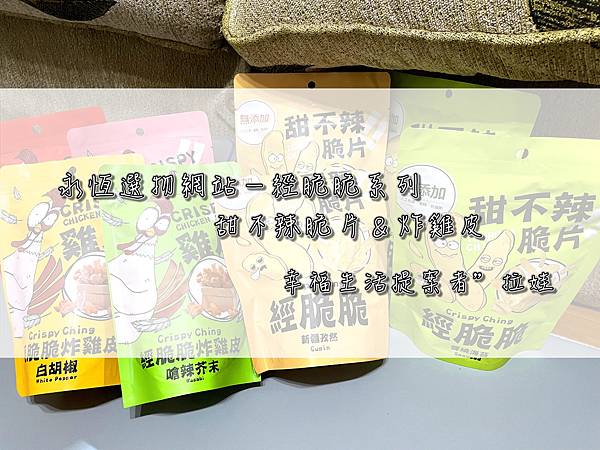 永恆選物網站－經脆脆系列
甜不辣脆片＆炸雞皮
幸福生活提案者”拉娃
無添加
甜不辣
脆片
經脆脆
新疆孜然
Cumin
CRISPY
CHICKEN
雞
Crispy Ching
脆脆炸雞皮
白胡椒
White Pepper
CRISPY
雞
Crispy Ching
經脆脆炸雞皮
嗆辣芥末
Wasabi
添加
甜不辣
脆片
Crispy Ching
經脆脆